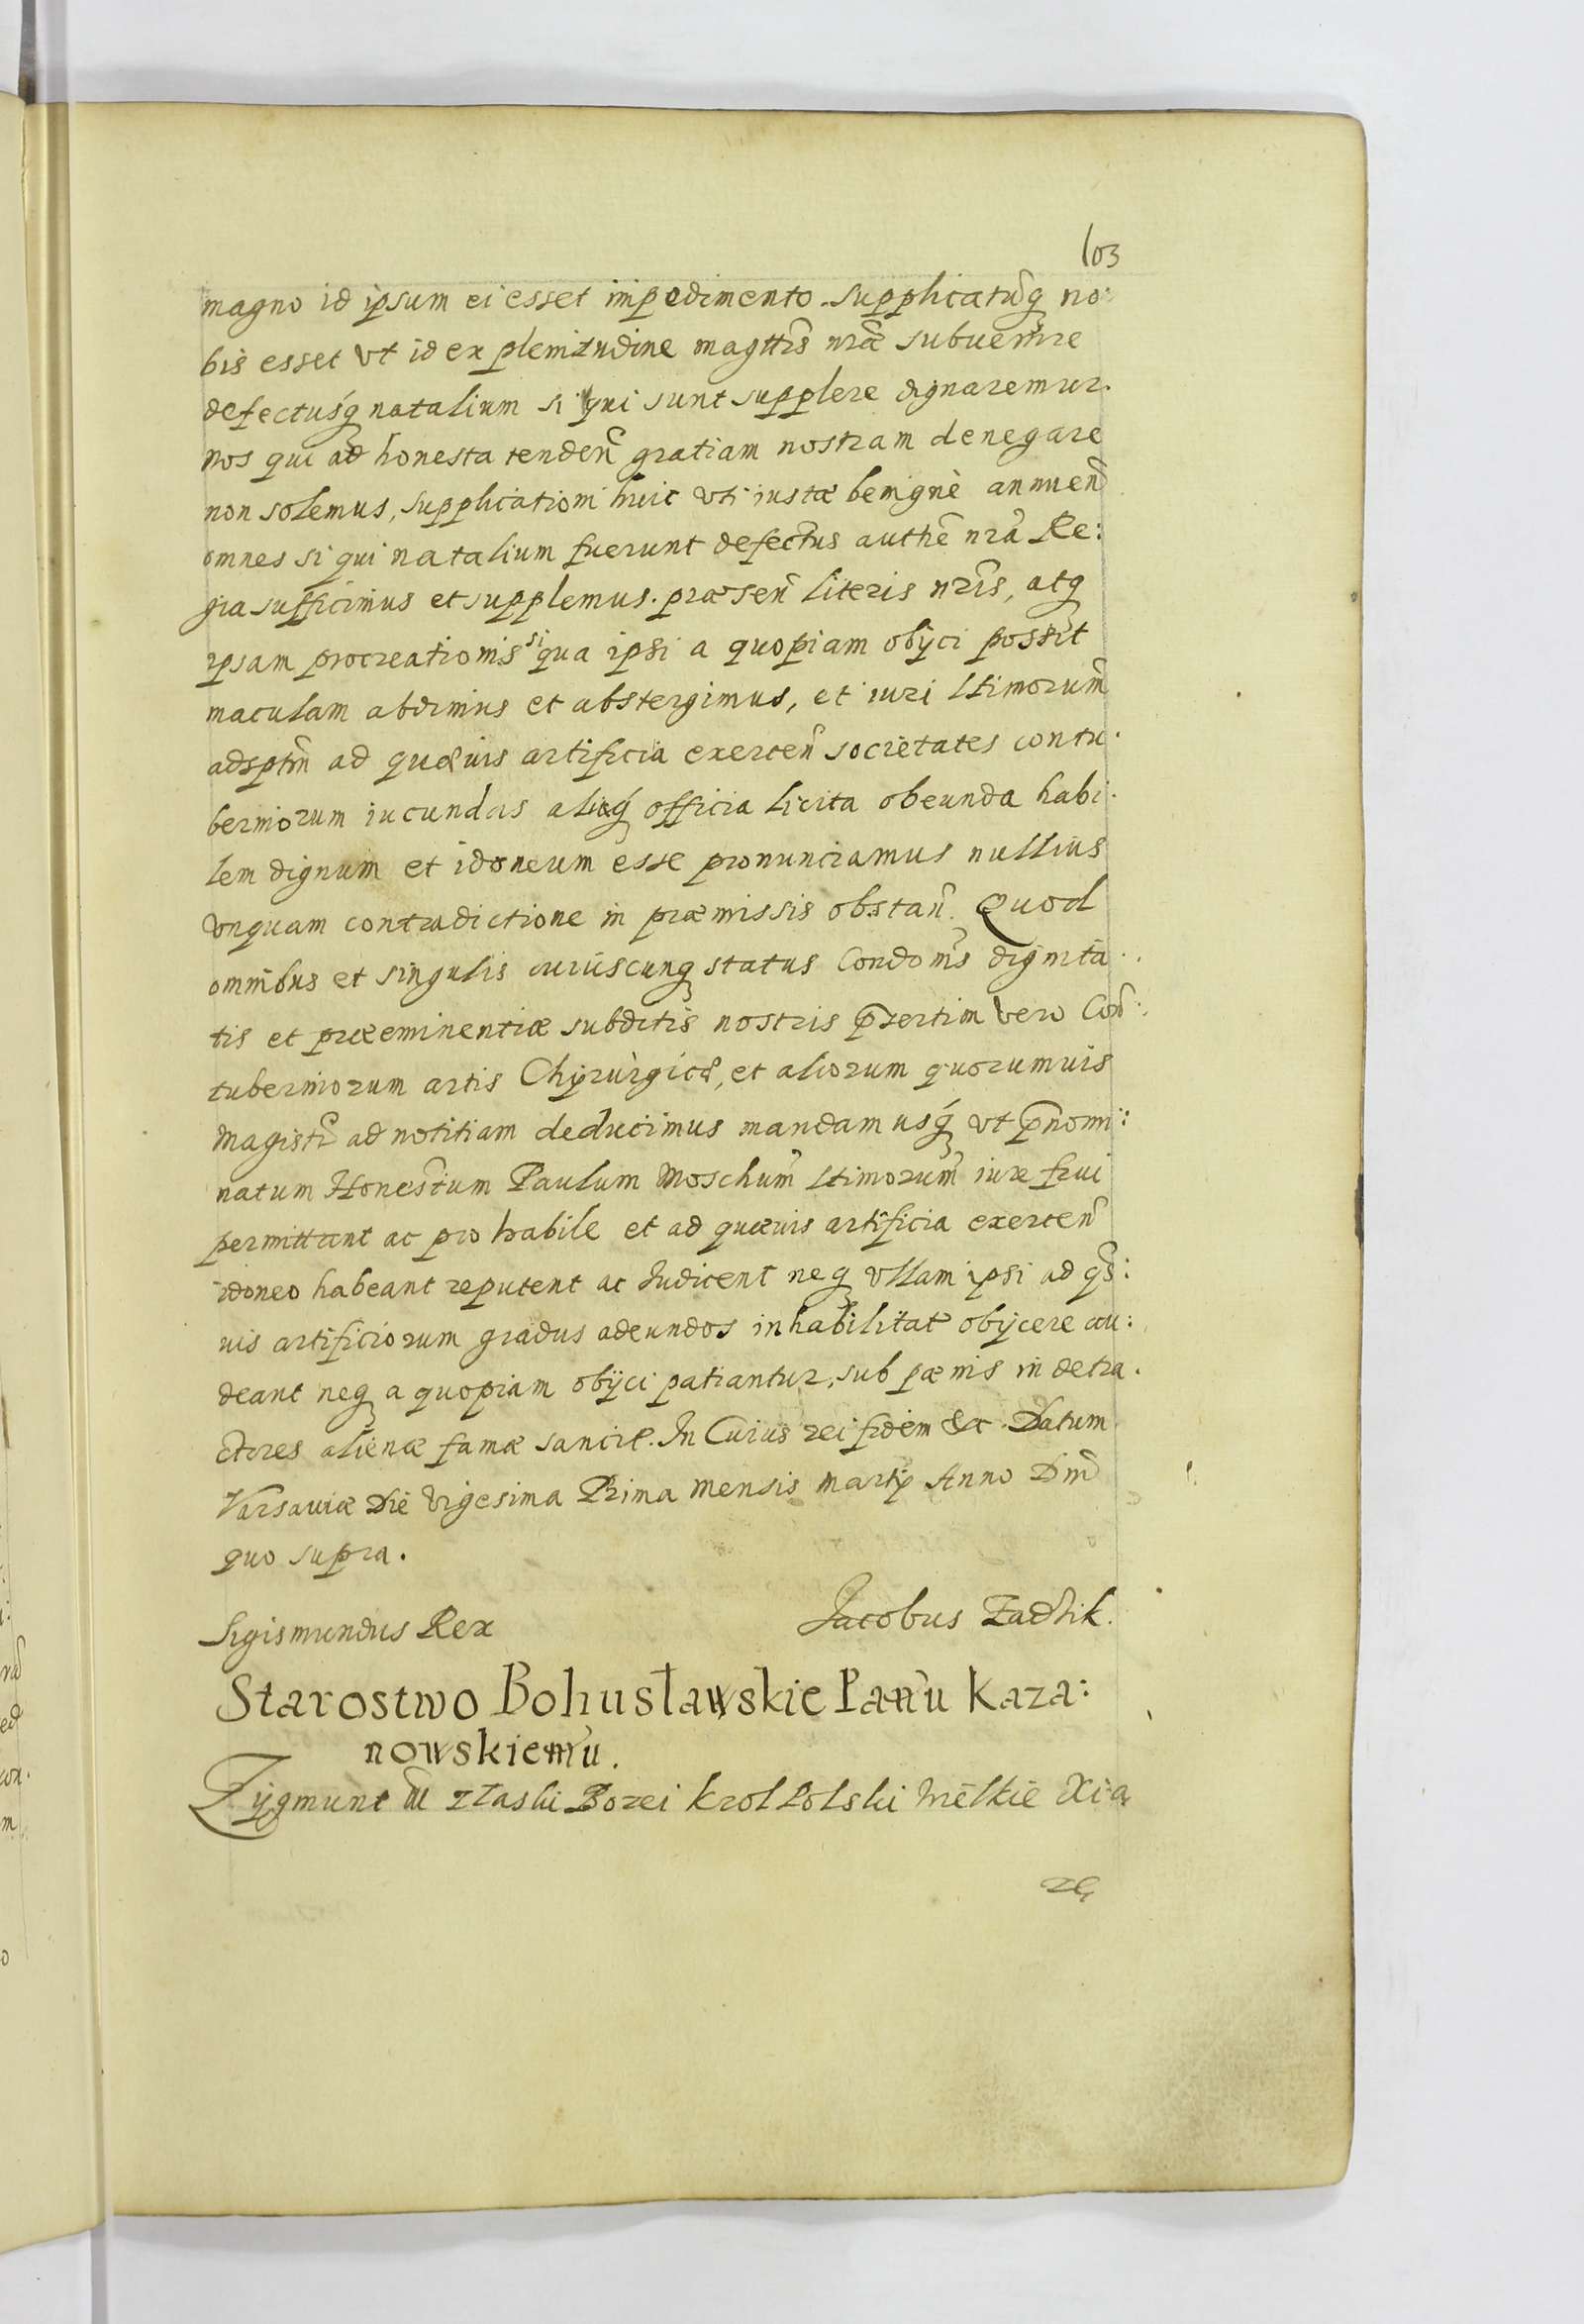 103
magno id ipsum ei esset impedimento supplicatũq no:
bis esset vt id ex plenitudine magttis nrae subuenire
defectusq natalium si qui sunt supplere dignaremur.
nos qui ad honesta tenden̄ gratiam nostram denegare
non solemus, supplicationi huic vti iustae benignè annuen̄
omnes si qui natalium fuerunt defectus authẽ nrã Re:
gia sufficimus et supplemus. praesen̄ literis nris, atq
ipsam procreationis si qua ipsi a quopiam obÿci possit
maculam abdimus et abstergimus, et iuri Ltimorum
adsptm ad quaeuis artificia exercen̄ societates contu.
berniorum iucundas aliaq officia licita obeunda habi.
lem dignum et idoneum esse pronunciamus nullius
vnquam contradictione in praemissis obstan̄. Quod
omnibus et singulis cuiuscunq status Condonis dignita.
tis et praeeminentiae subditis nostris prsertim vero Con:
tuberniorum artis Chyrurgicae, et aliorum quorumuis
Magistr̃ ad notitiam deducimus mandamusq vt pnomi:
natum Honestum Paulum Moschum Ltimorum iure frui
permittant ac pro habile et ad quaeuis artificia exercen̄
idoneo habeant reputent ac Iudicent neq vllam ipsi ad qs:
uis artificiorum gradus adeundos inhabilitate obÿcere au:
deant neq a quopiam obÿci patiantur, sub paenis in detra.
ctores alienae famae sancit. In Cuius rei fidem &c. Datum
Varsauiae Die Vigesima Prima Mensis Martÿ Anno Dni
quo supra.
Sigismundus Rex Jacobus Zadzik.
Starostwo Bohusławskie Panu Kaza:
nowskiemu.
Zÿgmunt III z łaski Bozei krol Polski Wielkie Xią
ze